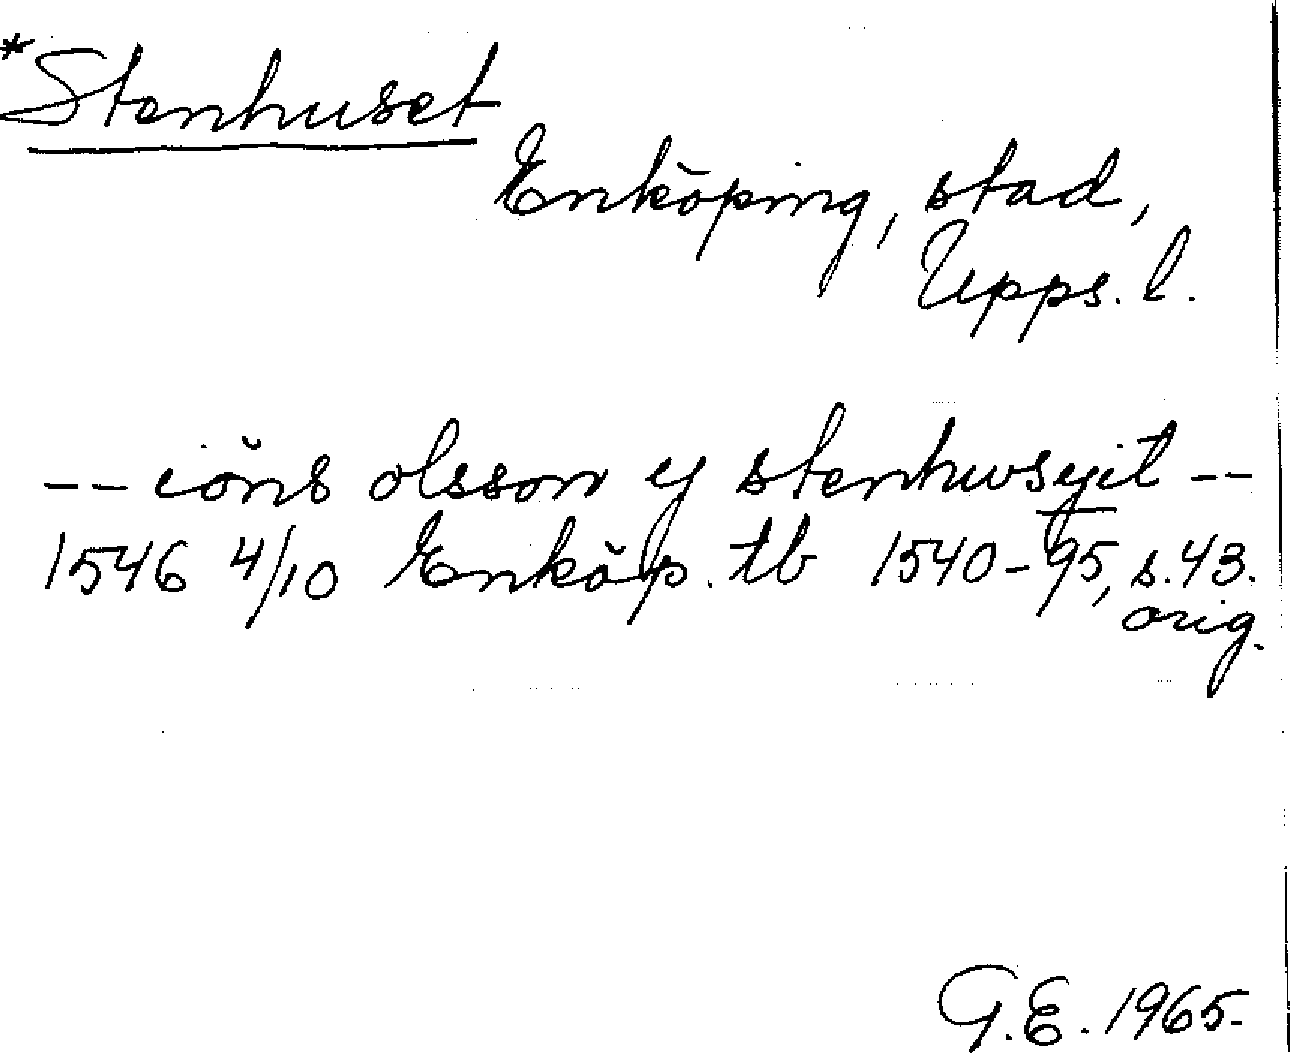 *Stenhuset
Enköping, stad,
Upps. l.
-- iöns olsson ij stenhusyit --
1546 4/10 Enköp. tb 1540-95, s. 43.
orig.
G.E. 1965.